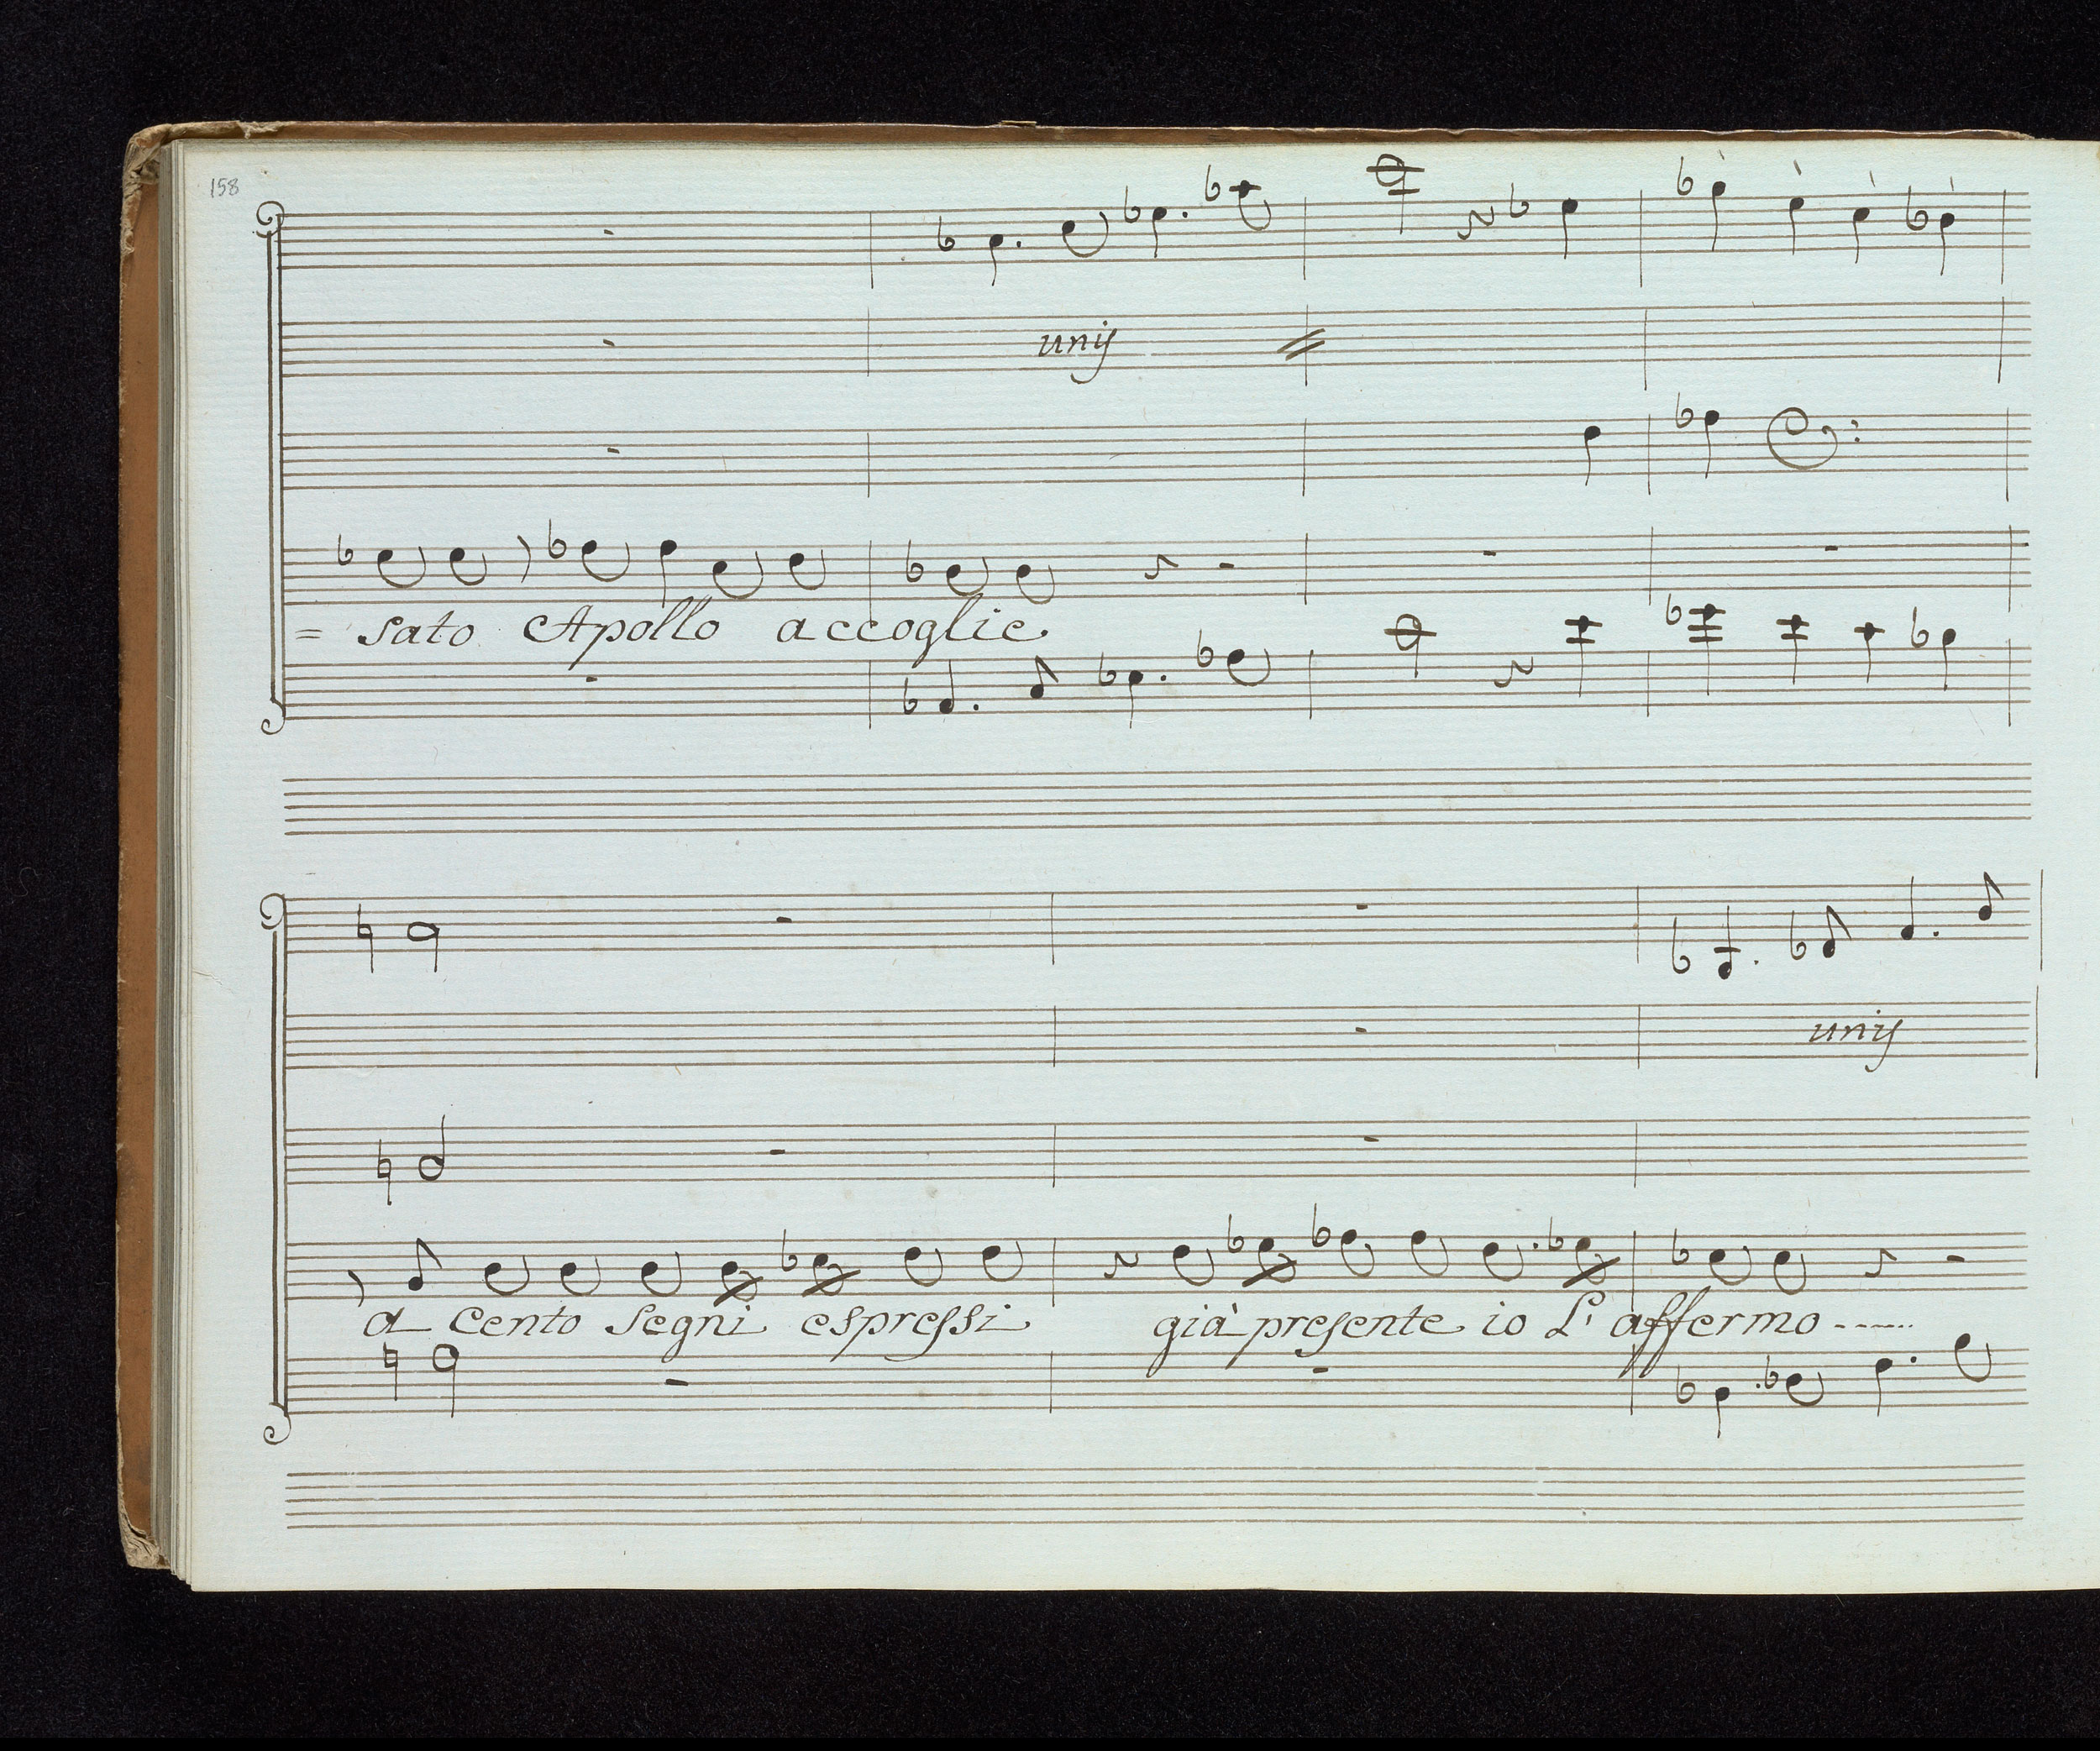 158
unis
= sato Apollo accoglie
unis
a cento segni espressi già presente io L' affermo ------